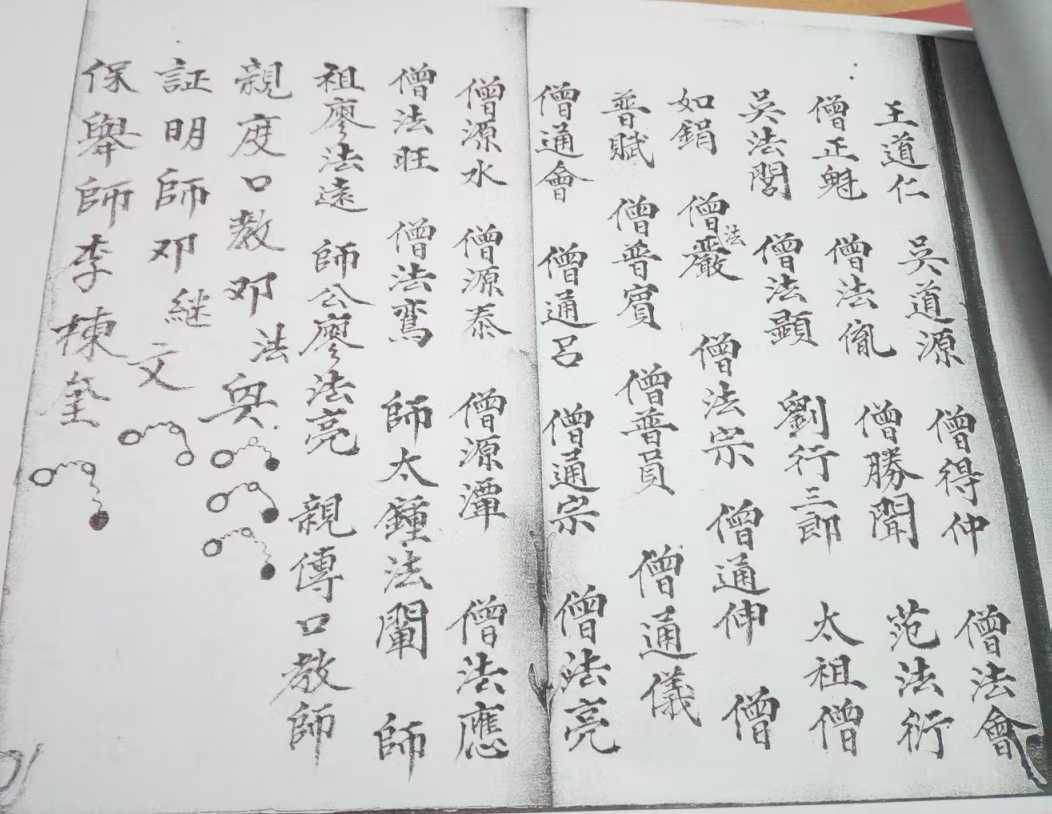 王道仁　吳道源　僧得仲　僧法會
僧正魁　僧法胤　僧勝聞　范法衍
吳法誾　僧法顯　劉行三郎　太祖僧
如鋗　僧法嚴　僧法宗　僧通伸　僧
普賦　僧普賓　僧普員　僧通儀
僧通會　僧通呂　僧通宗　僧法亮
僧源水　僧源泰　僧源潭　僧法應
僧法旺　僧法鸾　師太鍾法闡　師
祖廖法遠　師公廖法亮　親傳口教師
親度口教邓法興
証明師邓継文
保舉師李棟